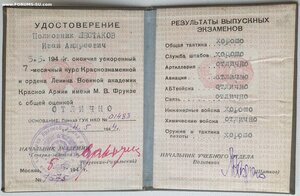 УДОСТОВЕРЕНИЕ
Полковник ШЕСТАКОВ
Иван Андреевич
5-5-1944 г. окончил ускоренный
7-месячный курс Краснознаменной
и ордена Ленина Военной академии
Красной Армии имени М. В. Фрунзе
с общей оценкой
ОТЛИЧНО
Приказ ГУК НКО № 01483
5 1944
НАЧАЛЬНИК АКАДЕМИИ
5
№ 7575
РЕЗУЛЬТАТЫ ВЫПУСКНЫХ
ЭКЗАМЕНОВ
Общая тактика хорошо
Служба штабов хорошо
Артиллерия отлично
Авиация отлично
АБТвойска отлично
Связь отлично
Инженерные войска хорошо
Химические войска отлично
Оружие и тактика
пехоты хорошо
НАЧАЛЬНИК УЧЕБНОГО ОТДЕЛА